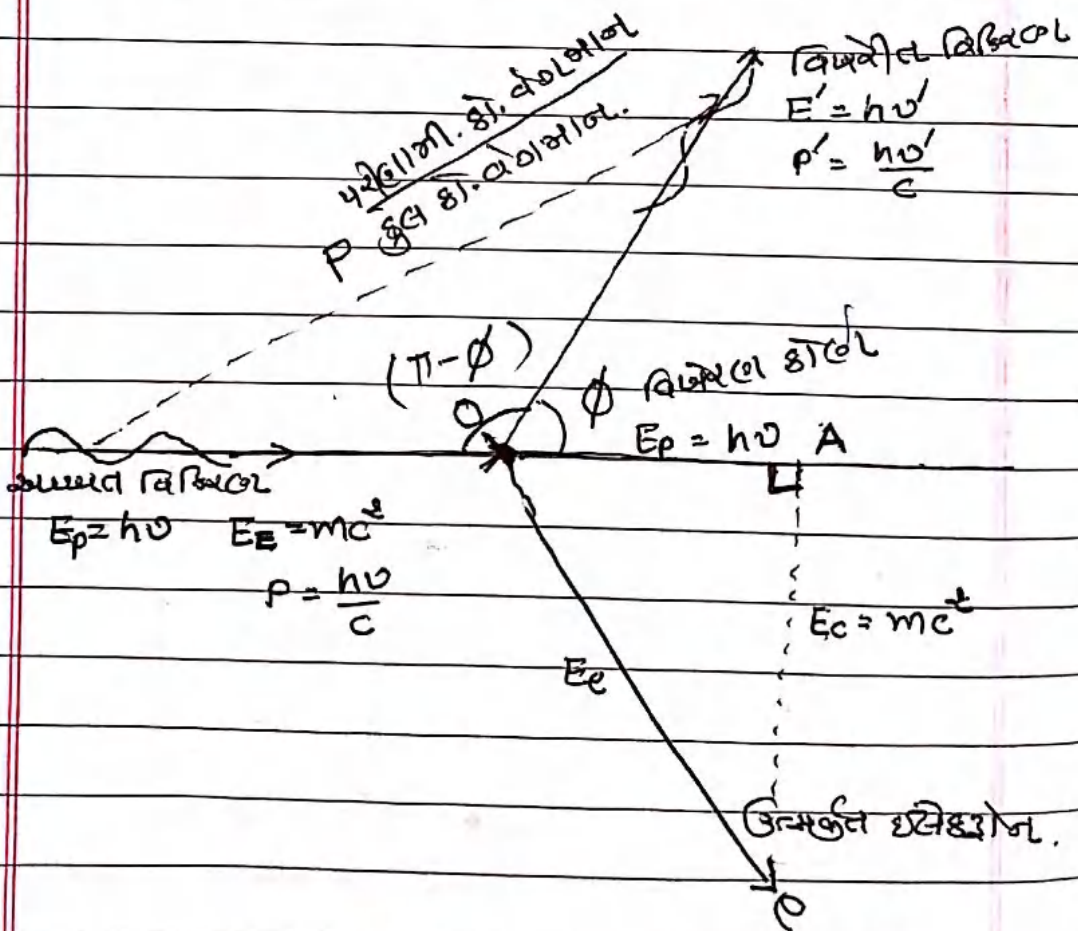 પરિણામી. કો. વેગમાન
P કુલ કો. વેગમાન.
વિખરીત વિકિરણ
E′ = hυ′
P′ = hυ′/c
(π-ϕ)
O
ϕ વિખેરણ કોણ
Ep = hυ A
આપાત વિકિરણ
Ep = hυ EE = mc²
P = hυ/c
Ec = mc²
Ee
ઉત્સર્જીત ઇલેક્ટ્રોન.
e